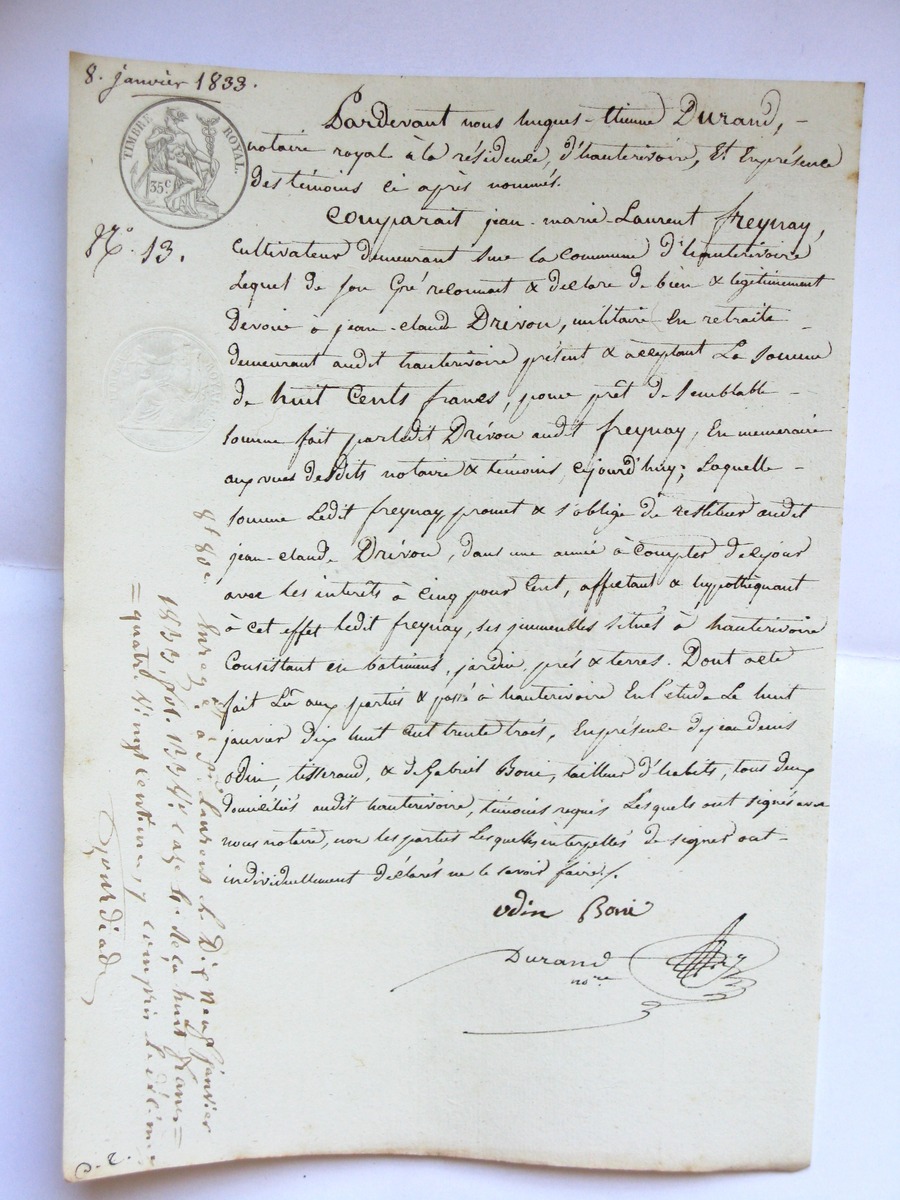 8. janvier 1833.
TIMBRE ROYAL
35 c
N.º 13.
Pardevant nous hugues-Etienne Durand,
notaire royal à la résidence, d'hauterivoire, Et En présence
des témoins ci après nommés.
Comparait jean-marie-Laurent freynay,
cultivateur demeurant sur la commune d'hauterivoire
Lequel de son Gré reconnait & déclare de bien & légitimement
devoir à jean-claude Drivon, militaire En retraite
demeurant audit hauterivoire présent & acceptant La somme
de huit Cents francs, pour prêt de semblable
somme fait par ledit Drivon audit freynay, En numeraire
aux vues desdits notaire & témoins, cejourd'huy; Laquelle
somme Ledit freynay, promet & s'oblige de restituer audit
jean-claude Drivon, dans une année à compter de ce jour
avec les interêts à cinq pour Cent, affectant & hypothéquant
à cet effet ledit freynay, ses immeubles situés à hauterivoire
Consistant en bâtimens, jardin, prés & terres. Dont acte
fait Lû aux parties & passé à hauterivoire En l'étude Le huit
janvier dix huit cent trente trois, En présence de jean denis
odin, tisserand, & de Gabriel Boni, tailleur d'habits, tous deux
domiciliés audit hauterivoire, témoins requis Lesquels ont signés avec
nous notaire, non les parties Lesquelles interpellés de signer ont
individuellement déclarés ne le savoir faire /.
odin Boni
Durand
nore
Enregé à St Laurent le Dix Neuf janvier
1833, fol. 133 Vº case 6. reçu huit francs
quatre vingt centimes, y compris le décime
C. 2.